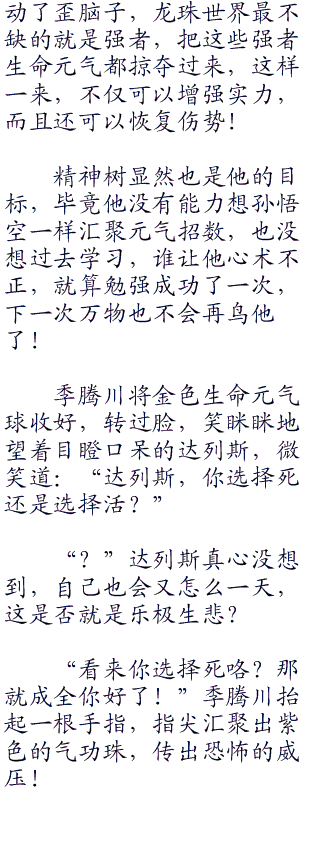 动了歪脑子，龙珠世界最不
缺的就是强者，把这些强者
生命元气都掠夺过来，这样
一来，不仅可以增强实力，
而且还可以恢复伤势！
精神树显然也是他的目
标，毕竟他没有能力想孙悟
空一样汇聚元气招数，也没
想过去学习，谁让他心术不
正，就算勉强成功了一次，
下一次万物也不会再鸟他
了！
季腾川将金色生命元气
球收好，转过脸，笑眯眯地
望着目瞪口呆的达列斯，微
笑道：“达列斯，你选择死
还是选择活？”
“？”达列斯真心没想
到，自己也会又怎么一天，
这是否就是乐极生悲？
“看来你选择死咯？那
就成全你好了！”季腾川抬
起一根手指，指尖汇聚出紫
色的气功珠，传出恐怖的威
压！